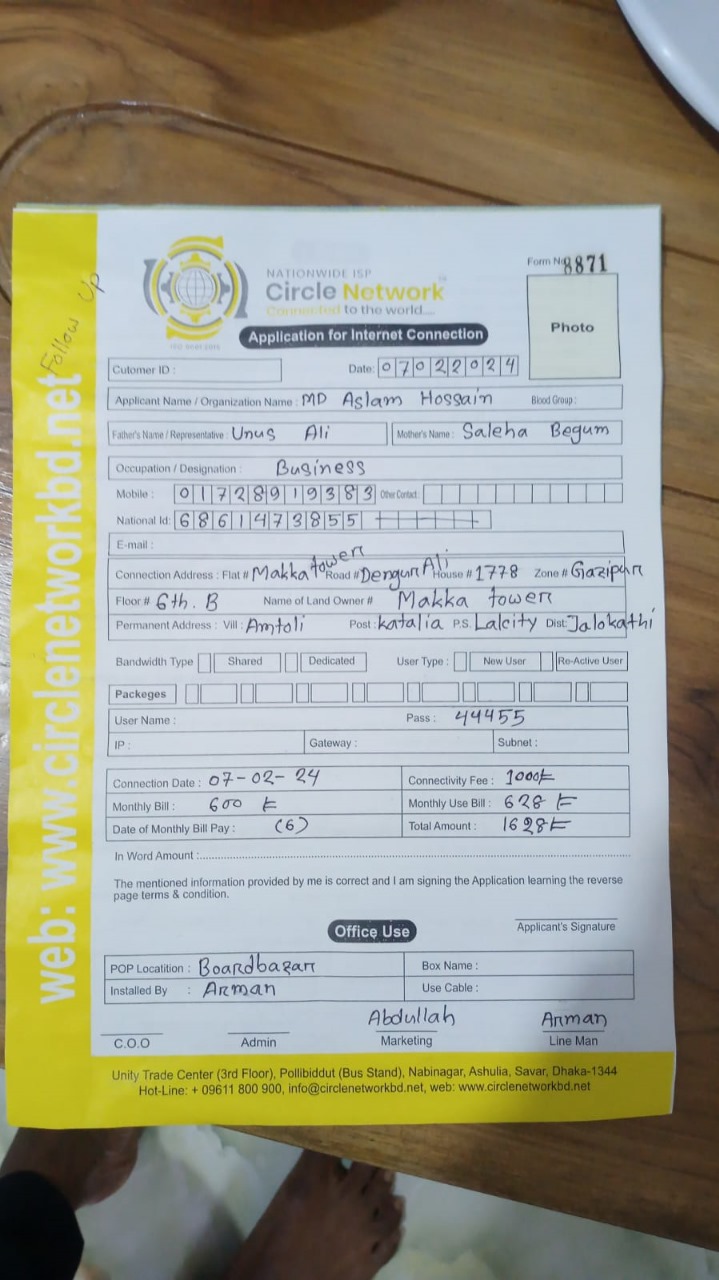 NATIONWIDE ISP
Circle Network
Connected to the world....
Form No 8871
Application for Internet Connection
Photo
Follow Up
web: www.circlenetworkbd.net
Cutomer ID :
Date: 07022024
Applicant Name / Organization Name : MD Aslam Hossain Blood Group :
Father's Name / Representative : Unus Ali Mother's Name : Saleha Begum
Occupation / Designation : Business
Mobile : 01728919383 Other Contact :
National Id: 6861473855
E-mail :
Connection Address : Flat # Makka tower Road # Dengun Ali House # 1778 Zone # Gazipur
Floor # 6th. B Name of Land Owner # Makka tower
Permanent Address : Vill : Amtoli Post : Katalia P.S. Lalcity Dist: Jalokathi
Bandwidth Type Shared Dedicated User Type : New User Re-Active User
Packeges
User Name : Pass : 44455
IP : Gateway : Subnet :
Connection Date : 07-02-24 Connectivity Fee : 1000
Monthly Bill : 600 Monthly Use Bill : 628
Date of Monthly Bill Pay : (6) Total Amount : 1628
In Word Amount :
The mentioned information provided by me is correct and I am signing the Application learning the reverse
page terms & condition.
Applicant's Signature
Office Use
POP Locatition : Boardbazar Box Name :
Installed By : Arman Use Cable :
Abdullah Arman
C.O.O Admin Marketing Line Man
Unity Trade Center (3rd Floor), Pollibiddut (Bus Stand), Nabinagar, Ashulia, Savar, Dhaka-1344
Hot-Line: + 09611 800 900, info@circlenetworkbd.net, web: www.circlenetworkbd.net